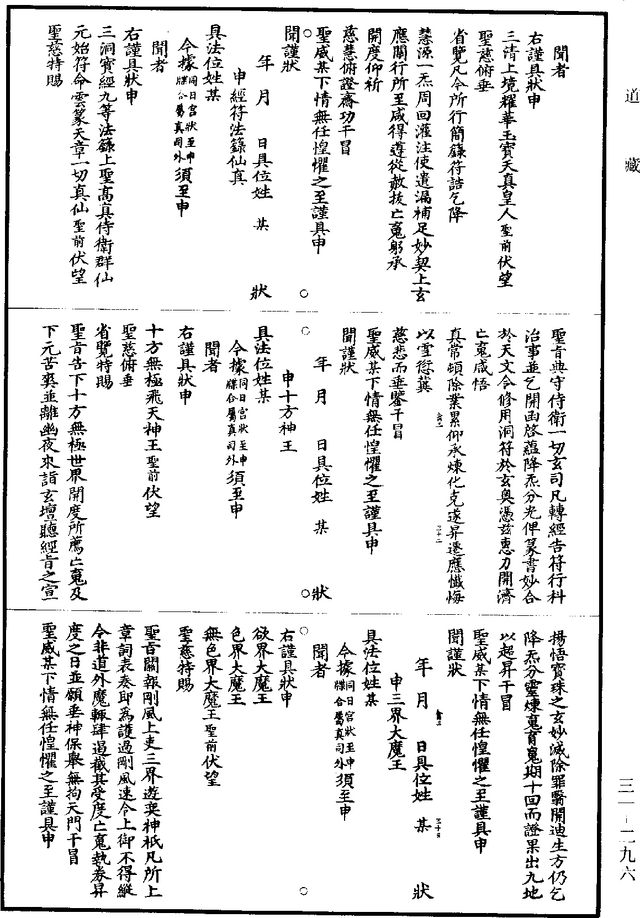 道藏
聞者
右謹具狀申
三清上境耀華玉寶天真皇人聖前伏望
聖慈俯垂
省覽凡今所行簡籙符誥乞降
慧源一炁周回灌注使遺漏補足妙契上玄
應關行所至咸得遵從赦拔亡䰟躬承
開度仰祈
慈慧俯證齋功干冒
聖威某下情無任惶懼之至謹具申
聞謹狀
年月日具位姓某狀
申經符法籙仙真
具法位姓某
今據同日宮狀至申牒合屬真司外須至申
聞者
右謹具狀申
三洞寶經九等法籙上聖高真侍衛群仙
元始符命雲篆天章一切真仙聖前伏望
聖慈特賜
聖旨典守侍衛一切玄司凡轉經告符行科
治事並乞開函啓蘊降炁分光俾篆書妙合
於天文令修用洞符於玄奧憑茲惠力開濟
亡䰟咸悟
真常頓除業累仰承煉化克遂昇遷應懺悔
以雪愆冀
慈悲而垂鑒干冒
聖威某下情無任惶懼之至謹具申
聞謹狀
年月日具位姓某狀
申十方神王
具法位姓某
今據同日宮狀至申牒合屬真司外須至申
聞者
右謹具狀申
十方無極飛天神王聖前伏望
聖慈俯垂
省覽特賜
聖旨告下十方無極世界開度所薦亡䰟及
下元苦爽並離幽夜來詣玄壇聽經旨之宣
揚悟寶珠之玄妙滅除罪翳開迪生方仍乞
降炁分靈煉䰟育䰟期十回而證果出九地
以超昇干冒
聖威某下情無任惶懼之至謹具申
聞謹狀
年月日具位姓某狀
申三界大魔王
具法位姓某
今據同日宮狀至申牒合屬真司外須至申
聞者
右謹具狀申
欲界大魔王
色界大魔王
無色界大魔王聖前伏望
聖慈特賜
聖旨關報剛風上吏三界遊奕神祇凡所上
章詞表奏即為護過剛風速令上御不得縱
令非道外魔輒肆遏截其受度亡䰟執券昇
度之日並願垂神保舉無拘天門干冒
聖威某下情無任惶懼之至謹具申
三一－二九六